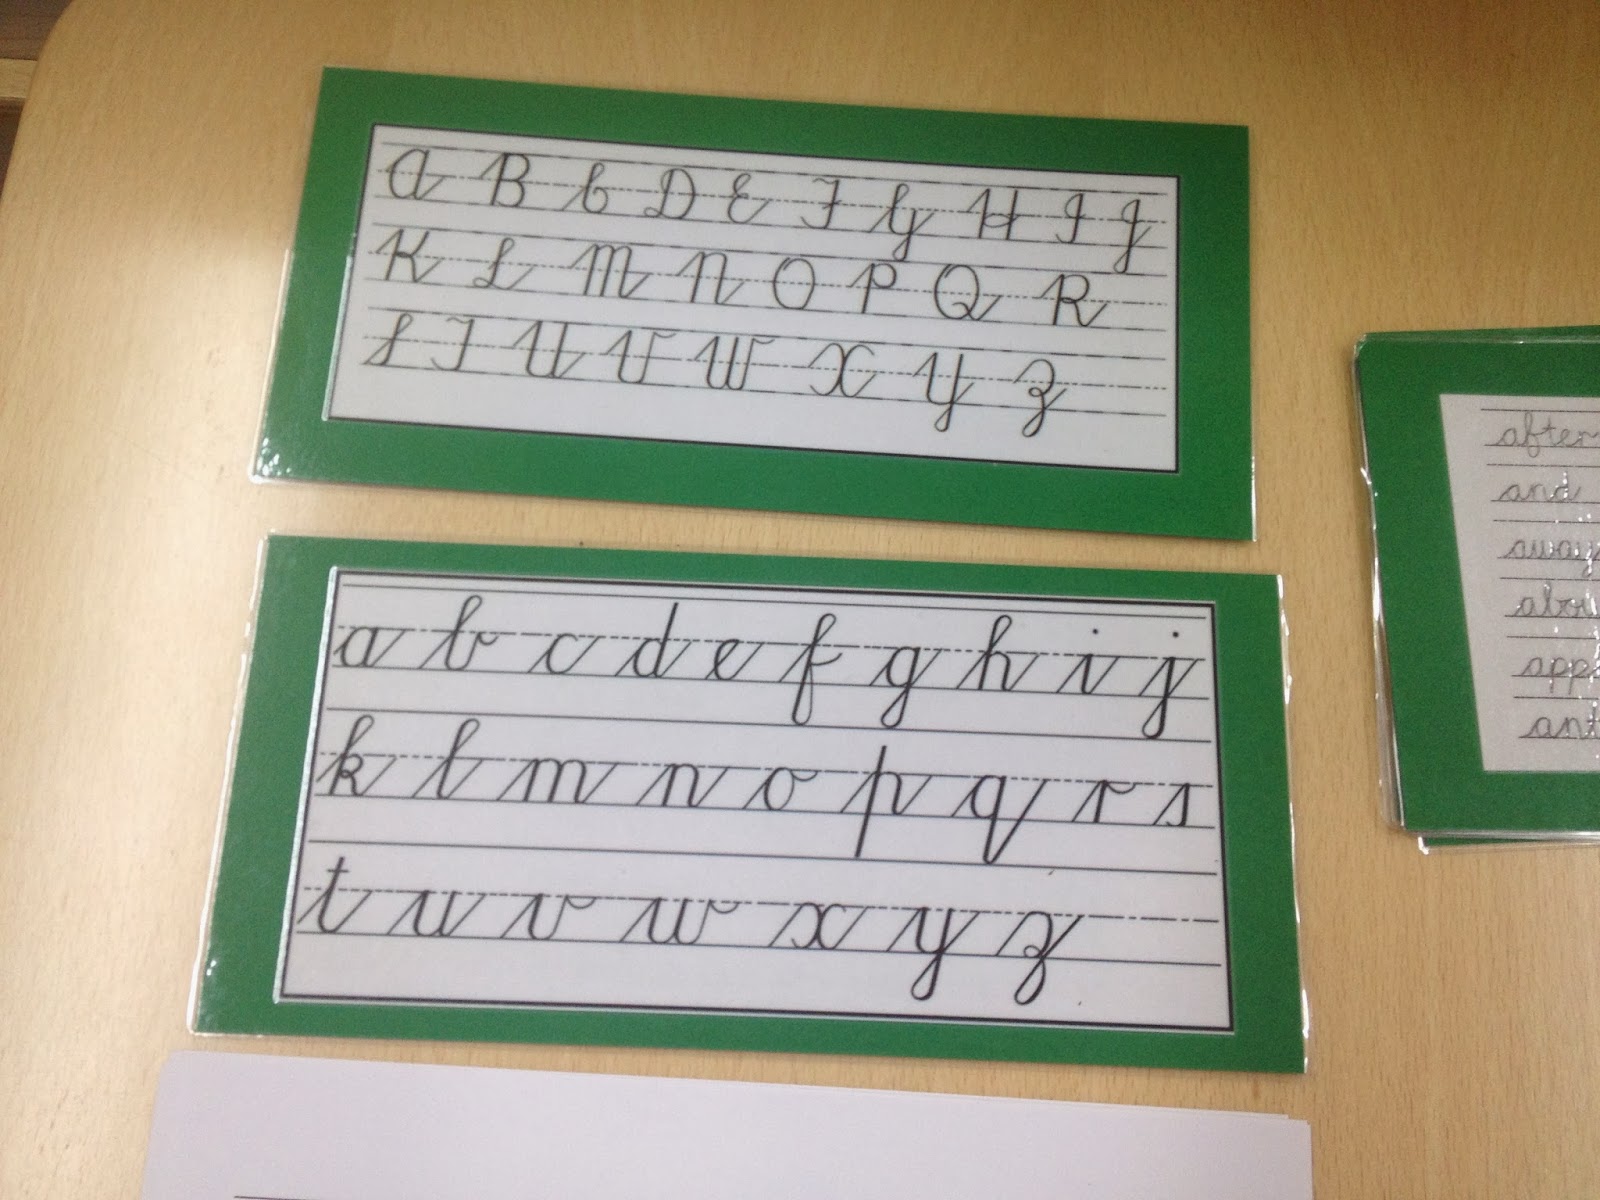 A B C D E F G H I J
K L M N O P Q R
S T U V W X Y Z
a b c d e f g h i j
k l m n o p q r s
t u v w x y z
and
away